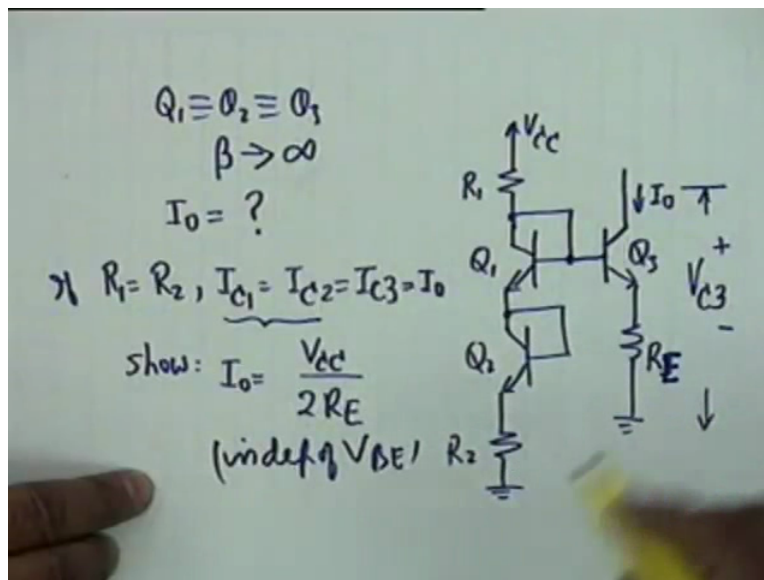 Q₁ ≡ Q₂ ≡ Q₃
β → ∞
I₀ = ?
If R₁ = R₂, I_C₁ = I_C2 = I_C3 = I₀
show: I₀ = V_CC / 2 R_E
(indep of V_BE)
V_CC
R₁
I₀
Q₁
Q₃
+
V_C3
-
Q₂
R_E
R₂